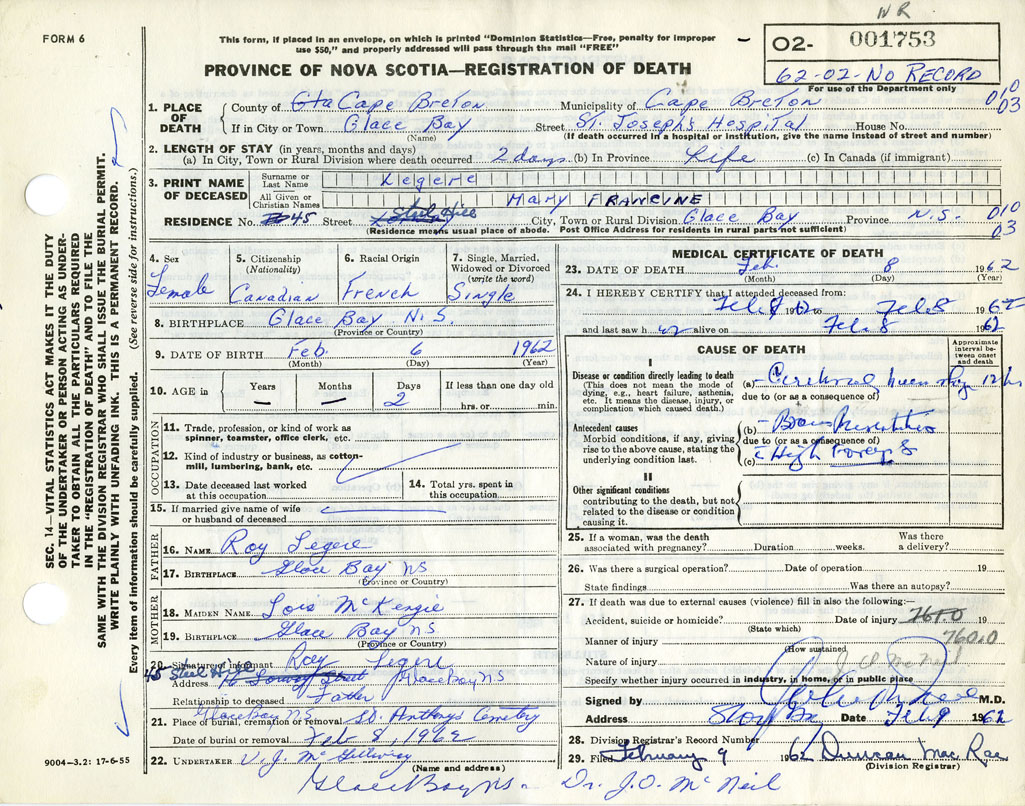 N R
FORM 6
This form, if placed in an envelope, on which is printed "Dominion Statistics—Free, penalty for improper
use $50," and properly addressed will pass through the mail "FREE"
O2- 001753
62-02-No RECORD
For use of the Department only
PROVINCE OF NOVA SCOTIA—REGISTRATION OF DEATH
SEC. 14—VITAL STATISTICS ACT MAKES IT THE DUTY
OF THE UNDERTAKER OR PERSON ACTING AS UNDER-
TAKER TO OBTAIN ALL THE PARTICULARS REQUIRED
IN THE "REGISTRATION OF DEATH" AND TO FILE THE
SAME WITH THE DIVISION REGISTRAR WHO SHALL ISSUE THE BURIAL PERMIT.
WRITE PLAINLY WITH UNFADING INK. THIS IS A PERMANENT RECORD.
Every item of information should be carefully supplied. (See reverse side for instructions.)
1. PLACE OF DEATH
County of Cape Breton Municipality of Cape Breton 010
03
If in City or Town Glace Bay Street St. Joseph's Hospital House No.
(Name) (If death occurred in a hospital or institution, give the name instead of street and number)
2. LENGTH OF STAY (in years, months and days)
(a) In City, Town or Rural Division where death occurred 2 days (b) In Province Life (c) In Canada (if immigrant)
3. PRINT NAME OF DECEASED
Surname or Last Name Legere
All Given or Christian Names MARY FRANCINE
RESIDENCE No. 45 Street Steel Hill City, Town or Rural Division Glace Bay Province N.S. 010
03
(Residence means usual place of abode. Post Office Address for residents in rural parts not sufficient)
4. Sex
Female
5. Citizenship
(Nationality)
Canadian
6. Racial Origin
French
7. Single, Married,
Widowed or Divorced
(write the word)
Single
8. BIRTHPLACE Glace Bay N.S.
(Province or Country)
9. DATE OF BIRTH Feb. 6 1962
(Month) (Day) (Year)
10. AGE in
Years —
Months —
Days 2
If less than one day old
hrs. or min.
OCCUPATION
11. Trade, profession, or kind of work as
spinner, teamster, office clerk, etc.
12. Kind of industry or business, as cotton-
mill, lumbering, bank, etc.
13. Date deceased last worked
at this occupation
14. Total yrs. spent in
this occupation
15. If married give name of wife
or husband of deceased
FATHER
16. NAME Roy Legere
17. BIRTHPLACE Glace Bay NS
(Province or Country)
MOTHER
18. MAIDEN NAME Lois McKenzie
19. BIRTHPLACE Glace Bay NS
(Province or Country)
20. Signature of informant Roy Legere
45 Steel Hill
Address Glace Bay NS
Relationship to deceased Father
Glace Bay NS
21. Place of burial, cremation or removal St. Anthonys Cemetery
Date of burial or removal Feb 8, 1962
22. UNDERTAKER V. J. McGillivray
(Name and address)
Glace Bay NS. Dr. J.O. McNeil
9004—3.2: 17-6-55
MEDICAL CERTIFICATE OF DEATH
23. DATE OF DEATH Feb. 8 1962
(Month) (Day) (Year)
24. I HEREBY CERTIFY that I attended deceased from:
Feb 8 1962 to Feb 8 1962
and last saw h er alive on Feb 8 1962
CAUSE OF DEATH
Approximate
interval be-
tween onset
and death
I
Disease or condition directly leading to death
(This does not mean the mode of
dying, e.g., heart failure, asthenia,
etc. It means the disease, injury, or
complication which caused death.)
(a) Cerebral 12 hrs
due to (or as a consequence of)
Antecedent causes
Morbid conditions, if any, giving
rise to the above cause, stating the
underlying condition last.
(b)
due to (or as a consequence of)
(c) High Forceps
II
Other significant conditions
contributing to the death, but not
related to the disease or condition
causing it.
25. If a woman, was the death
associated with pregnancy? Duration weeks. Was there
a delivery?
26. Was there a surgical operation? Date of operation 19
State findings Was there an autopsy?
27. If death was due to external causes (violence) fill in also the following:—
Accident, suicide or homicide? Date of injury 19
(State which)
761.0
760.0
Manner of injury
(How sustained)
Nature of injury
J O McNeil
Specify whether injury occurred in industry, in home, or in public place
Signed by M.D.
Address Date Feb 9 1962
28. Division Registrar's Record Number
29. Filed February 9 1962 Duncan MacRae
(Division Registrar)